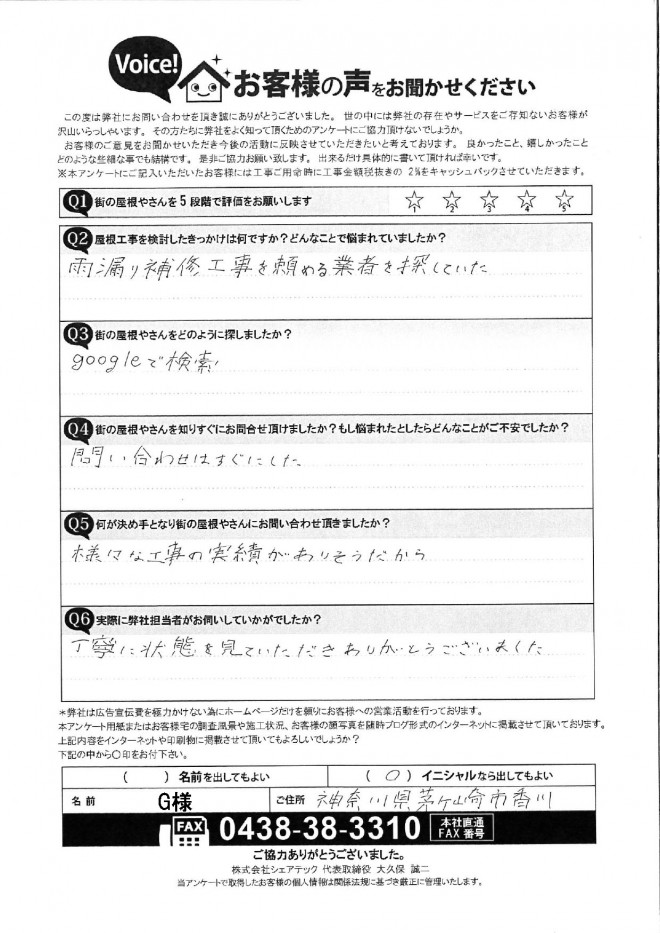 Voice!
お客様の声をお聞かせください
この度は弊社にお問い合わせを頂き誠にありがとうございました。 世の中には弊社の存在やサービスをご存知ないお客様が
沢山いらっしゃいます。 その方たちに弊社をよく知って頂くためのアンケートにご協力頂けないでしょうか。
お客様のご意見をお聞かせいただき今後の活動に反映させていただきたいと考えております。 良かったこと、嬉しかったこと
どのような些細な事でも結構です。 是非ご協力お願い致します。 出来るだけ具体的に書いて頂ければ幸いです。
※本アンケートにご記入いただいたお客様には工事ご用命時に工事金額税抜きの 2%をキャッシュバックさせていただきます。
Q1 街の屋根やさんを5段階で評価をお願いします
1 2 3 4 5
Q2 屋根工事を検討したきっかけは何ですか？どんなことで悩まれていましたか？
雨漏り補修工事を頼める業者を探していた
Q3 街の屋根やさんをどのように探しましたか？
googleで検索
Q4 街の屋根やさんを知りすぐにお問合せ頂けましたか？もし悩まれたとしたらどんなことがご不安でしたか？
問い合わせはすぐにした
Q5 何が決め手となり街の屋根やさんにお問い合わせ頂きましたか？
様々な工事の実績がありそうだから
Q6 実際に弊社担当者がお伺いしていかがでしたか？
丁寧に状態を見ていただきありがとうございました
＊弊社は広告宣伝費を極力かけない為にホームページだけを頼りにお客様への営業活動を行っております。
本アンケート用紙またはお客様宅の調査風景や施工状況、お客様の顔写真を随時ブログ形式のインターネットに掲載させて頂いております。
上記内容をインターネットや印刷物に掲載させて頂いてもよろしいでしょうか？
下記の中から〇印をお付下さい。
（　）名前を出してもよい （ 〇 ）イニシャルなら出してもよい
名 前 G様 ご住所 神奈川県茅ケ崎市香川
FAX 0438-38-3310 本社直通 FAX 番号
ご協力ありがとうございました。
株式会社シェアテック 代表取締役 大久保 誠二
当アンケートで取得したお客様の個人情報は関係法規に基づき厳正に管理いたします。